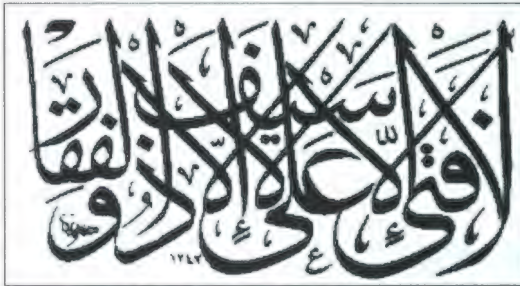 لا فتى إلا علي لا سيف إلا ذو الفقار
١٢٤٢